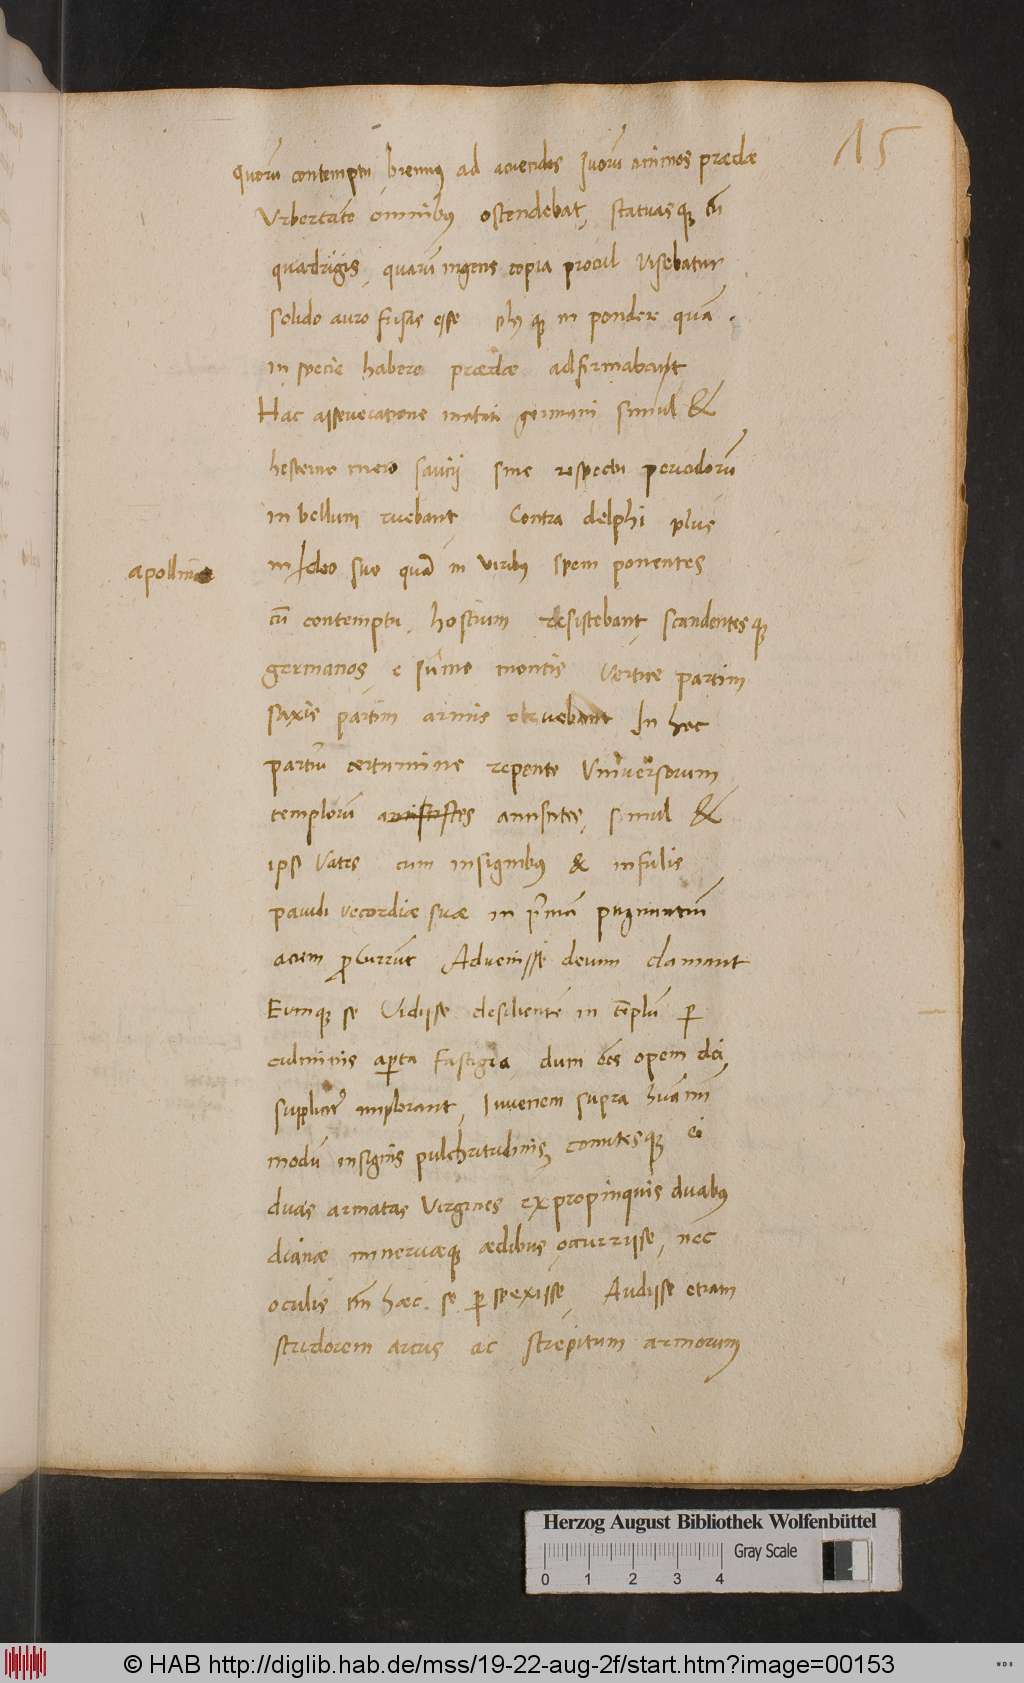 15
quorũ contemptu brennus ad acuendos suorũ animos praedae
Vbertatẽ omnibus ostendebat, statuasque cũ
quadrigis, quarũ ingens copia procul visebatur
solido auro fusas esse plus que in pondere quã
in specie habere praedae adfirmabant
Hac asseveratione incitati germani simul &
hesterno mero saucij sine respectu periculorũ
in bellum ruebant Contra delphi plus
apolline
in deo suo quã in viribus spem ponentes
cũ contemptu hostium resistebant, scandentesque
germanos e sũmo montis vertice partim
saxis partim armis obruebant In hoc
partiũ certamine repente Vniversorum
templorũ antistites, simul &
ipsę Vates cum insignibus & infulis
pavidi vecordiae suae in primã pugnantiũ
aciem procurrũt Advenisse deum clamant
Eumque se Vidisse desilientẽ in tẽplũ per
culminis aperta fastigia, dum oẽs opem dei
suppliciter implorant, Iuvenem supra humanũ
modũ insignis pulchritudinis, comitesque ei
duas armatas Virgines ex propinquis duabus
dianae minervaeque aedibus occurrisse, nec
oculis tm̃ haec se perspexisse, Audisse etiam
stridorem arcus ac strepitum armorum
Herzog August Bibliothek Wolfenbüttel
Gray Scale
0 1 2 3 4
© HAB http://diglib.hab.de/mss/19-22-aug-2f/start.htm?image=00153